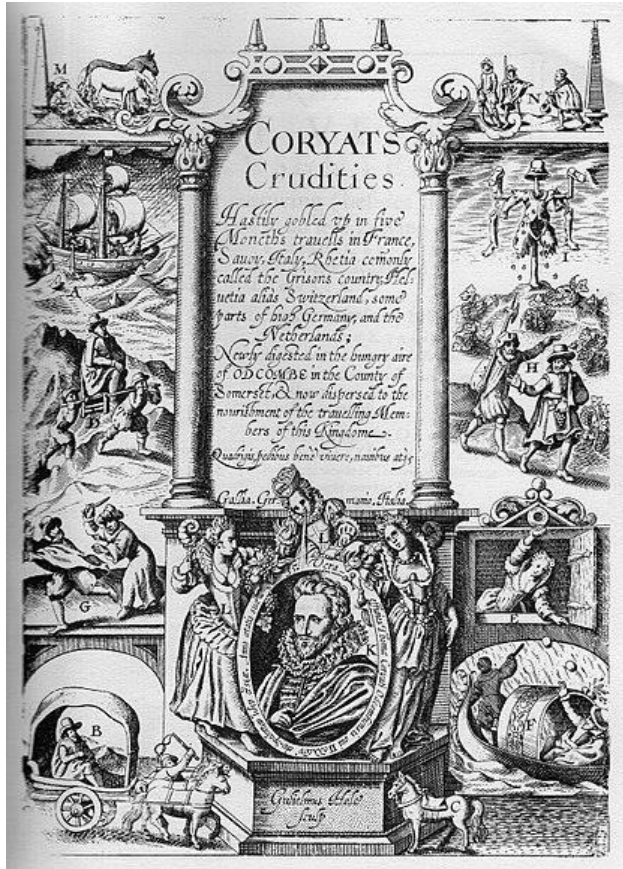 M
N
CORYATS
Crudities.
Hastily gobled vp in five
Moneths travells in France,
Savoy, Italy, Rhetia comonly
called the Grisons country, Hel-
vetia aliàs Switzerland, some
parts of high Germany, and the
Netherlands;
Newly digested in the hungry aire
of ODCOMBE in the County of
Somerset, & now dispersed to the
nourishment of the travelling Mem-
bers of this Kingdome.
Quadrigis, pedibus benè vivere, navibus atqs
Gallia. Ger mania. Italia.
A
D
G
B
I
H
E
F
L
K
C
Gulielmus Hole
sculp